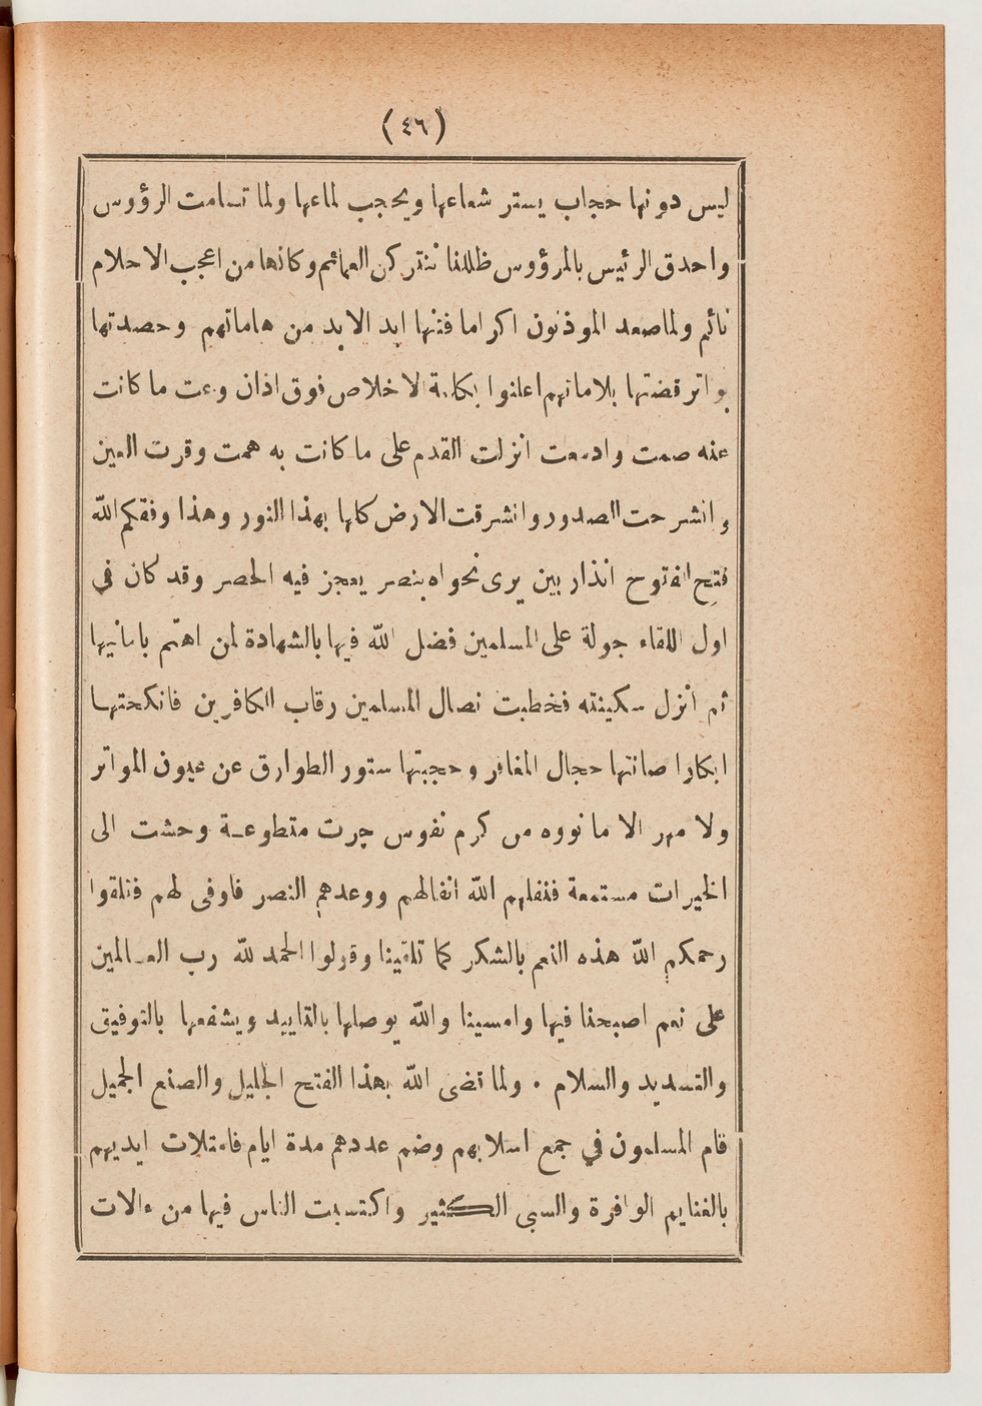 (٤٦)
ليس دونها حجاب يستر شعاعها ويحجب لماعها ولما تسامت الرؤوس
واحدق الرئيس بالمرؤوس ظللنا نتتركن العمائم وكانها من اعجب الاحلام
نائم ولما صعد الموذنون اكراما فتها ابد الابد من هاماتهم وحصدتها
بواتر قضتها بلاماتهم اعلنوا بكلمة الاخلاص فوق اذان وعت ما كانت
عنه صمت وادمعت انزلت القدم على ما كانت به همت وقرت العين
وانشرحت الصدور وانشرقت الارض كلها بهذا النور وهذا وفقكم الله
فتح الفتوح انذار بين يرى نحواه بنصر يعجز فيه الحصر وقد كان في
اول اللقاء جولة على المسلمين فضل الله فيها بالشهادة لمن اهتم بامانيها
ثم انزل سكينته فخطبت نصال المسلمين رقاب الكافرين فانكحتها
ابكارا صانتها حجال المغافر وحجبتها ستور الطوارق عن عيون المواتر
ولا مهر الا ما نووه من كرم نفوس جرت متطوعة وحشت الى
الخيرات مستمعة فنفلهم الله انفالهم ووعدهم النصر فاوفى لهم فتلقوا
رحمكم الله هذه النعم بالشكر كما تلقينا وقولوا الحمد لله رب العالمين
على نعم اصبحنا فيها وامسينا والله يوصلها بالتاييد ويشفعها بالتوفيق
والتسديد والسلام . ولما قضى الله بهذا الفتح الجليل والصنع الجميل
قام المسلمون في جمع اسلابهم وضم عددهم مدة ايام فامتلات ايديهم
بالغنايم الوافرة والسبى الكثير واكتسبت الناس فيها من ءالات